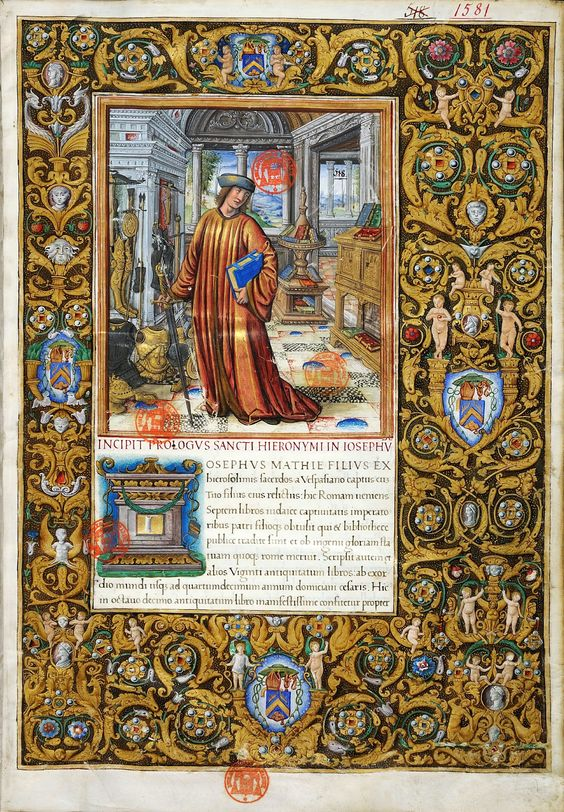 518 1581
518
INCIPIT PROLOGVS SANCTI HIERONYMI IN IOSEPHV
IOSEPHVS MATHIE FILIVS EX
hierosolimis sacerdos a Vespasiano captus cu
Tito filius eius relictus: hic Romam veniens
Septem libros iudaice captivitatis imperato
ribus patri filioq; obtulit qui & bibliothece
publice tradite sunt et ob ingenii gloriam sta
tuam quoq; rome meruit. Scripsit autem et
alios Viginti antiquitatum libros: ab exor
dio mundi usq; ad quartumdecimum annum domiciani cesaris. Hic
in octavo decimo antiquitatum libro manifestissime confitetur propter